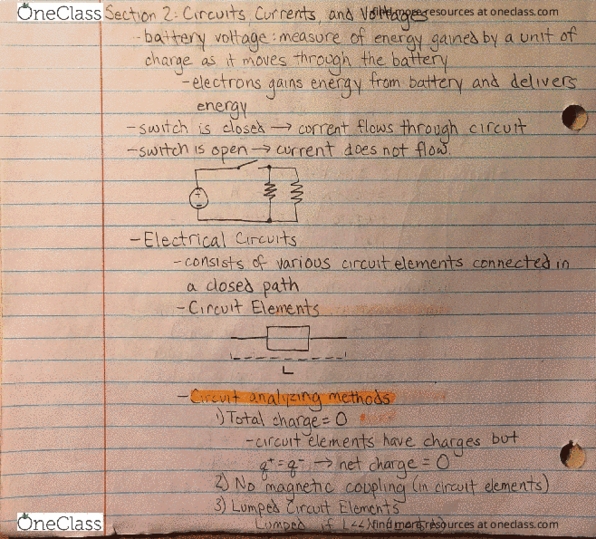 OneClass
find more resources at oneclass.com
Section 2: Circuits, Currents, and Voltages
- battery voltage: measure of energy gained by a unit of
charge as it moves through the battery
- electrons gains energy from battery and delivers
energy
- switch is closed → current flows through circuit
- switch is open → current does not flow.
+
-
- Electrical Circuits
- consists of various circuit elements connected in
a closed path
- Circuit Elements
L
- Circuit analyzing methods
1) Total charge = 0
- circuit elements have charges but
q⁺ = q⁻ → net charge = 0
2) No magnetic coupling (in circuit elements)
3) Lumped Circuit Elements
Lumped if L <<
OneClass
find more resources at oneclass.com